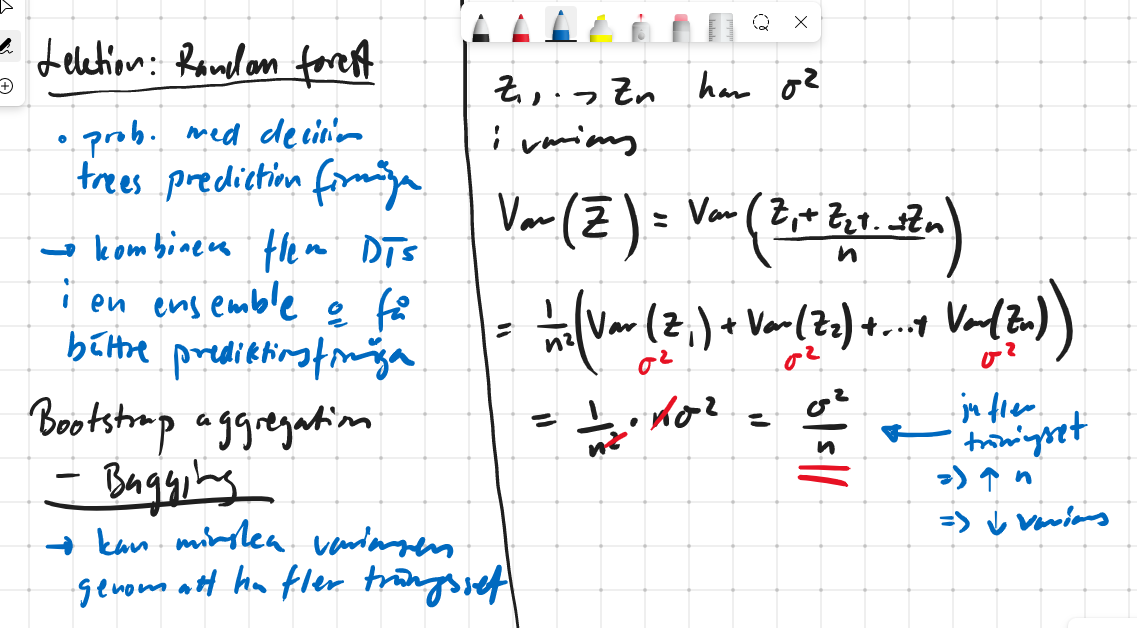 Lektion: Random forest
• prob. med decision
trees prediction förmåga
→ kombinera flera DTs
i en ensemble o få
bättre prediktionsförmåga
Bootstrap aggregation
- Bagging
→ kan minska variansen
genom att ha fler träningsset
Z₁, . → Zn har σ²
i varians
Var(Z̅) = Var((Z₁+Z₂+...+Zn)/n)
= 1/n² (Var(Z₁) + Var(Z₂) + ...+ Var(Zn))
σ² σ² σ²
= 1/n² · nσ² = σ²/n
← ju fler
träningsset
=> ↑ n
=> ↓ varians